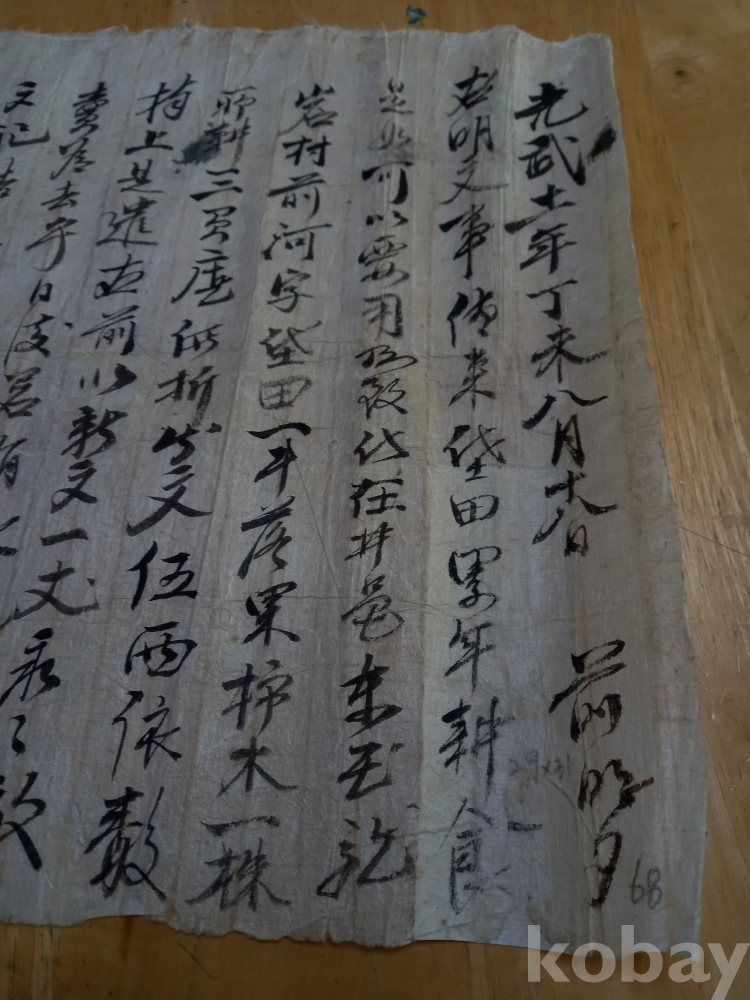 光武十一年丁未八月十八日 前明文
右明文事傳來垈田累年耕食
是如可以要用所致伏在井邑東玉龍
岩村前河字垈田一斗落果柿木一株
所耕三負庫乙折價文伍兩依數
捧上是遣右前以新文一丈永永放
賣爲去乎日後若有
文記
29x31
68
kobay